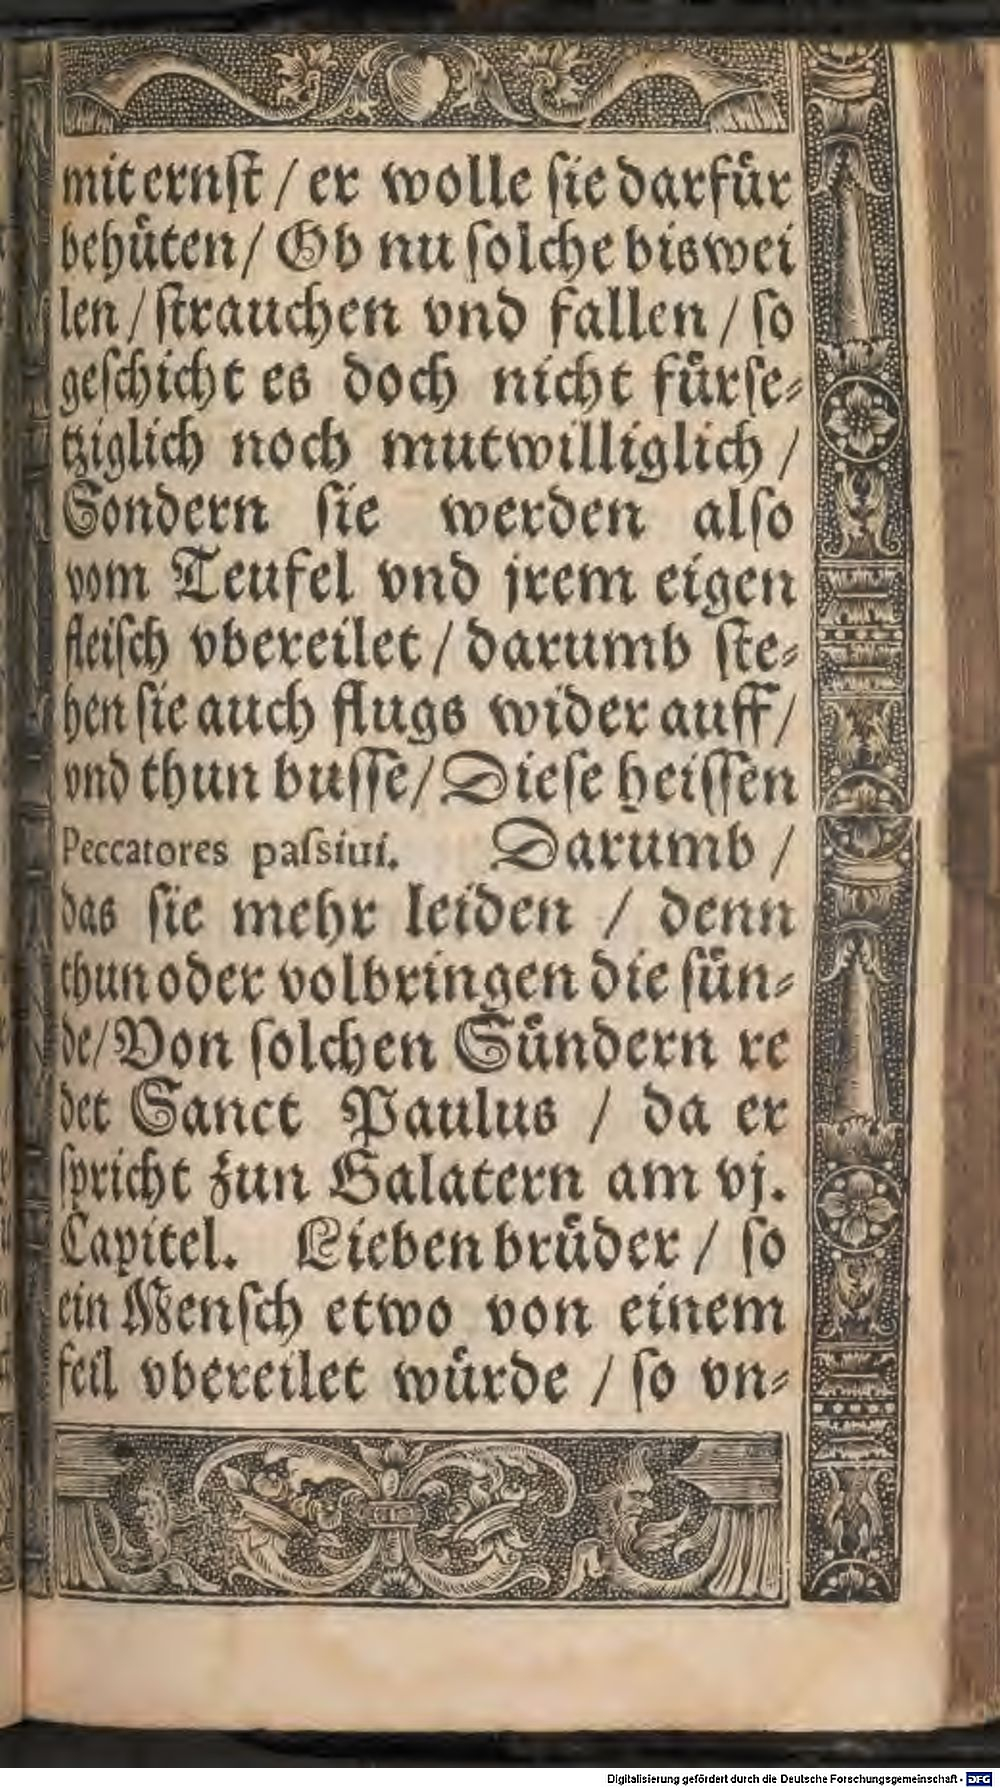 mit ernſt / er wolle ſie darfuͤr
behuͤten / Ob nu ſolche biswei
len / ſtrauchen vnd fallen / ſo
geſchicht es doch nicht fuͤrſe⸗
tziglich noch mutwilliglich /
Sondern ſie werden alſo
vom Teufel vnd jrem eigen
fleiſch vbereilet / darumb ſte⸗
hen ſie auch flugs wider auff /
vnd thun buſſe / Dieſe heiſſen
Peccatores paſsiui. Darumb /
das ſie mehr leiden / denn
thun oder volbringen die ſuͤn⸗
de / Von ſolchen Suͤndern re
det Sanct Paulus / da er
ſpricht zun Galatern am vj.
Capitel. Lieben bruͤder / ſo
ein Menſch etwo von einem
feil vbereilet wuͤrde / ſo vn⸗
Digitalisierung gefördert durch die Deutsche Forschungsgemeinschaft - DFG